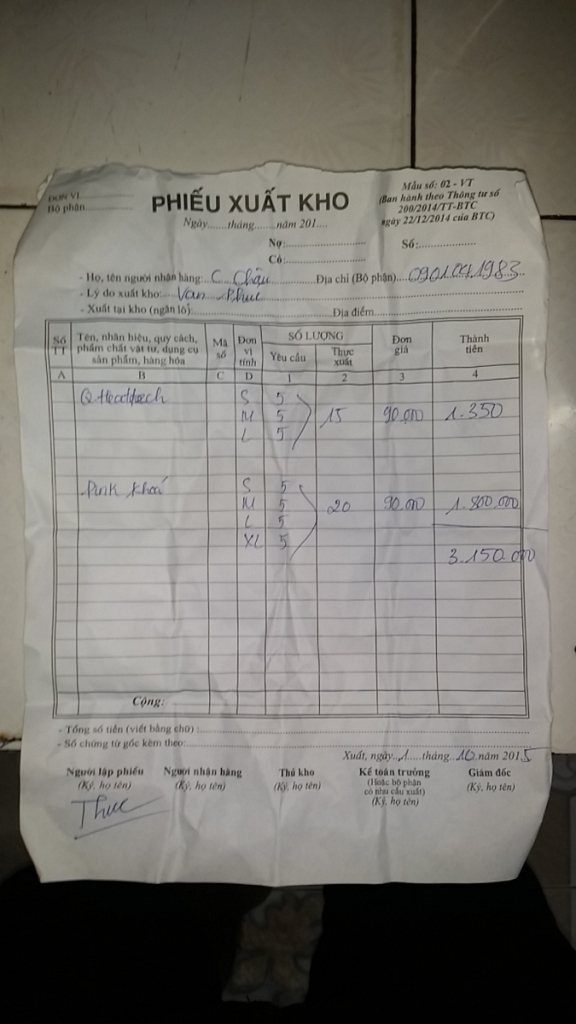 ĐƠN VỊ............
Bộ phận............
PHIẾU XUẤT KHO
Ngày.......tháng.......năm 201....
Mẫu số: 02 - VT
(Ban hành theo Thông tư số
200/2014/TT-BTC
ngày 22/12/2014 của BTC)
Nợ:............ Số:............
Có:............
- Họ, tên người nhận hàng: C. Châu Địa chỉ (Bộ phận)....0901041983
- Lý do xuất kho: Van Phuc
- Xuất tại kho (ngăn lô):............ Địa điểm............
Số TT Tên, nhãn hiệu, quy cách, phẩm chất vật tư, dụng cụ sản phẩm, hàng hóa Mã số Đơn vị tính SỐ LƯỢNG Đơn giá Thành tiền
Yêu cầu Thực xuất
A B C D 1 2 3 4
S 5
M 5 15 90.000 1.350
L 5
Pink khoá S 5
M 5 20 90.000 1.800.000
L 5
XL 5
3.150.000
Cộng:
- Tổng số tiền (viết bằng chữ) :............
- Số chứng từ gốc kèm theo:............
Xuất, ngày..1....tháng..10.năm 2015
Người lập phiếu Người nhận hàng Thủ kho Kế toán trưởng Giám đốc
(Ký, họ tên) (Ký, họ tên) (Ký, họ tên) (Hoặc bộ phận (Ký, họ tên)
có nhu cầu xuất)
(Ký, họ tên)
Thuc